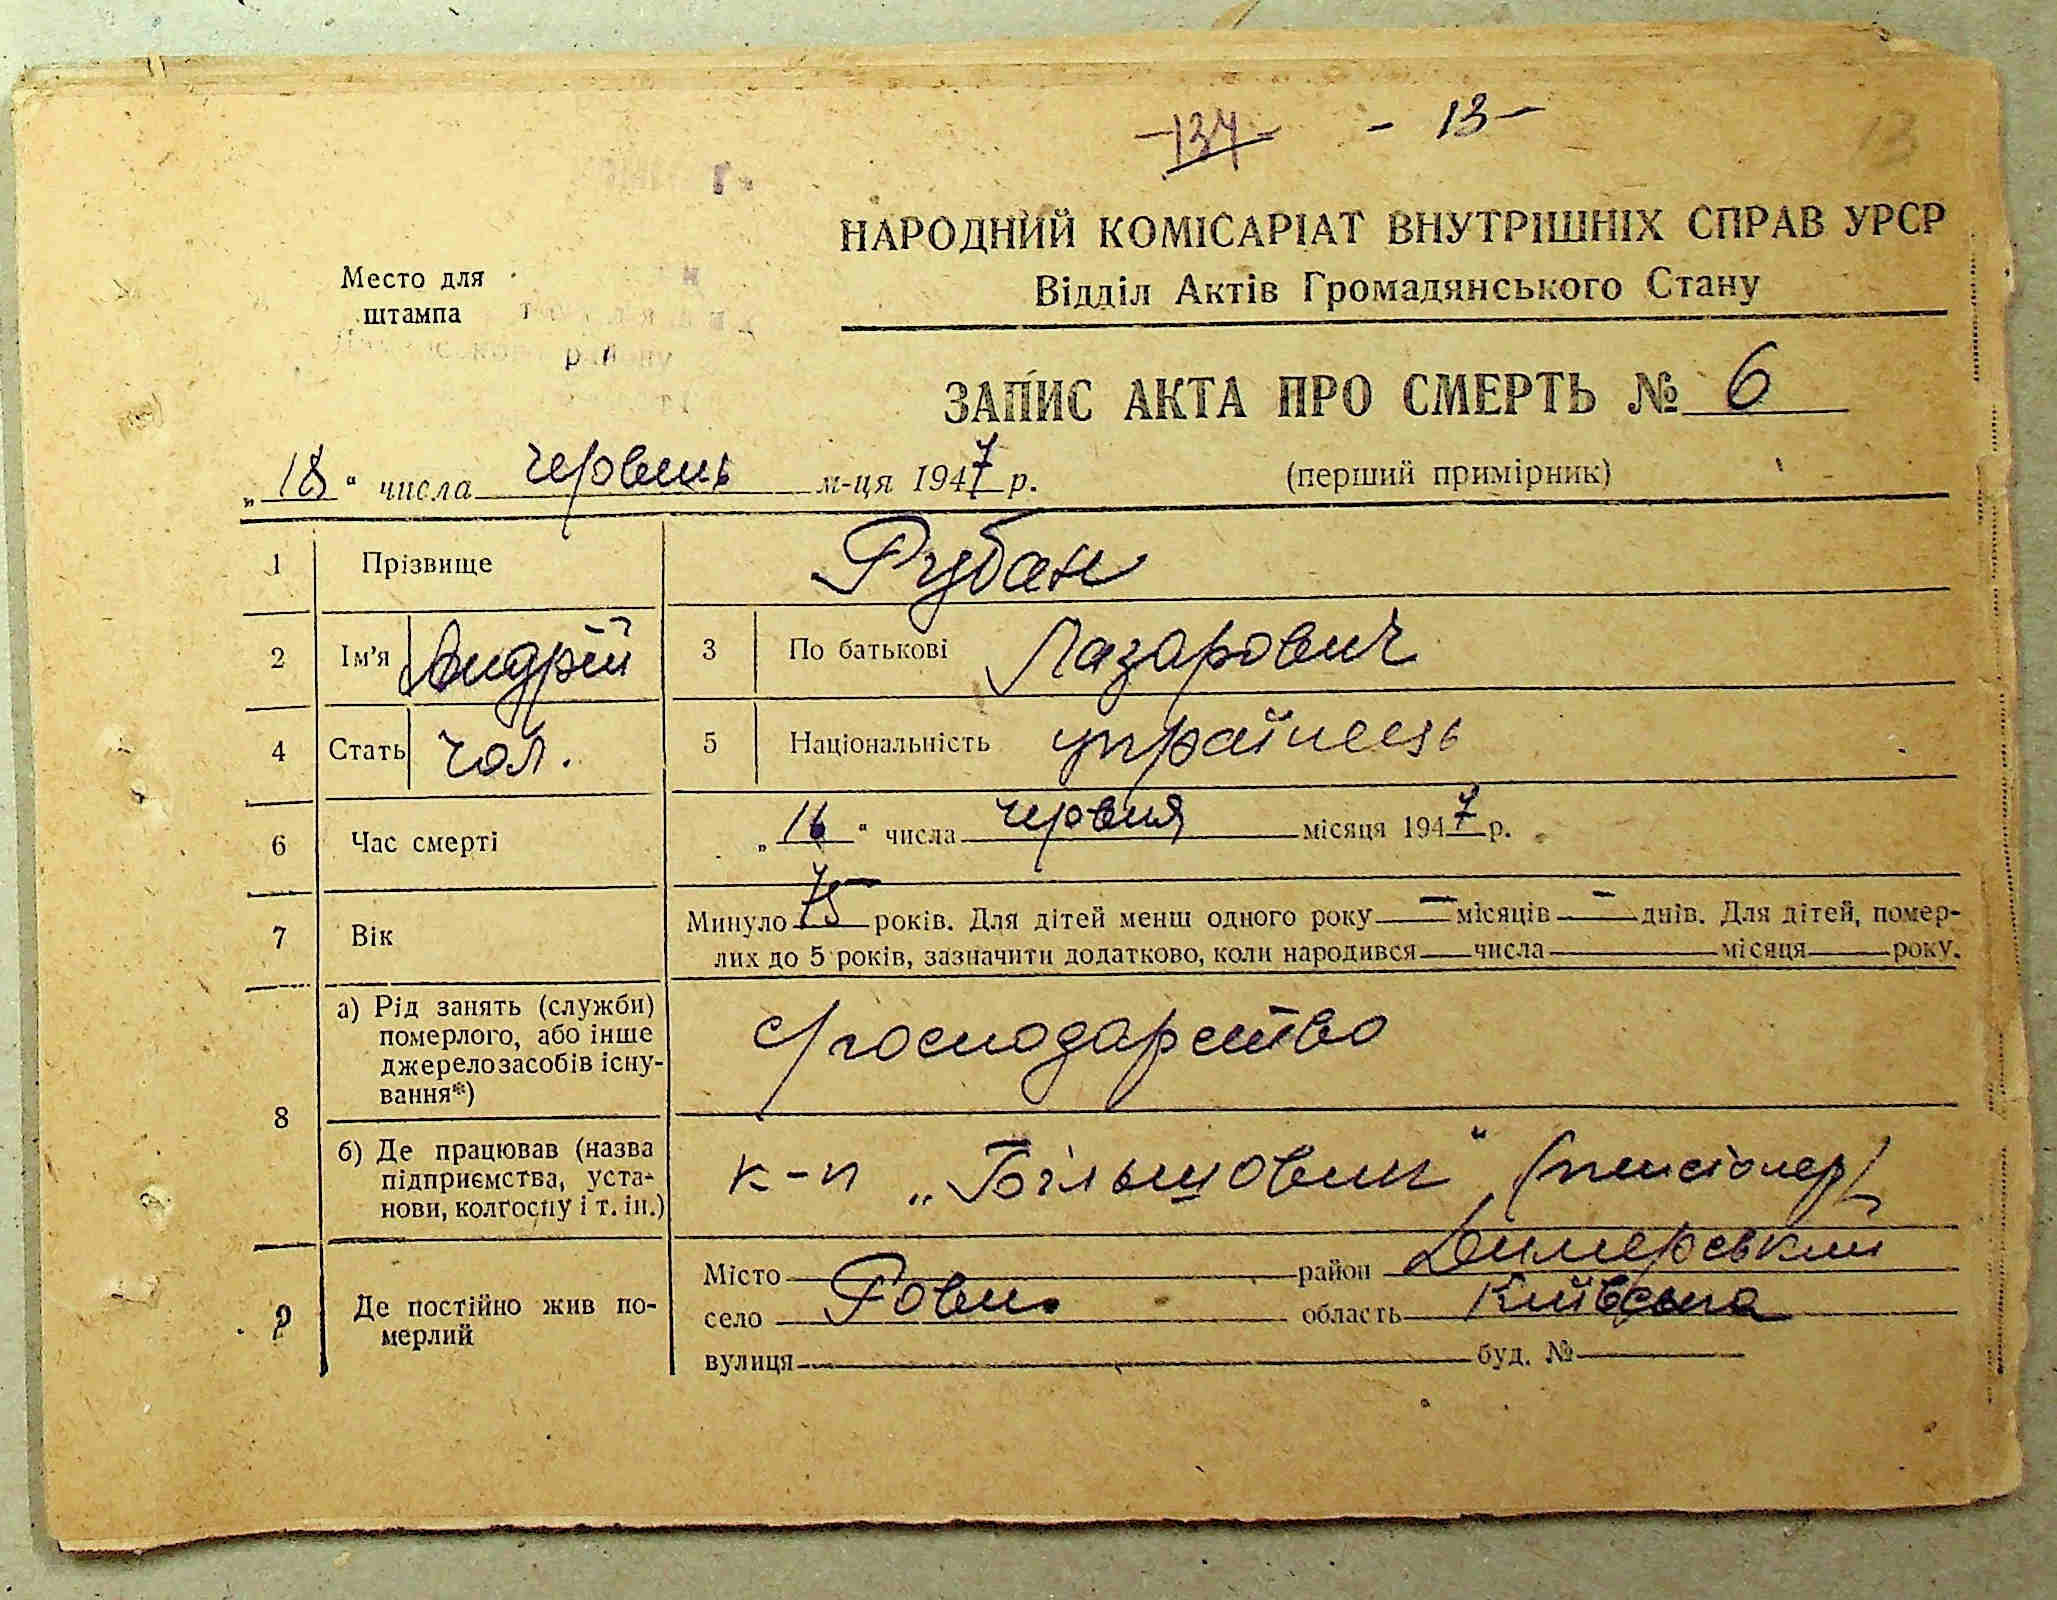 -137- - 13 - 13
НАРОДНИЙ КОМІСАРІАТ ВНУТРІШНІХ СПРАВ УРСР
Відділ Актів Громадянського Стану
Место для
штампа
ЗАПИС АКТА ПРО СМЕРТЬ № 6
„18“ числа червень м-ця 1947 р. (перший примірник)
1 Прізвище Рубан
2 Ім'я Андрій 3 По батькові Лазарович
4 Стать чол. 5 Національність українець
6 Час смерті „16“ числа червня місяця 1947 р.
7 Вік Минуло 75 років. Для дітей менш одного року — місяців — днів. Для дітей, помер-
лих до 5 років, зазначити додатково, коли народився числа місяця року.
8 а) Рід занять (службы) с/господарство
померлого, або інше
джерело засобів існу-
вання*)
б) Де працював (назва к-п „Більшовик“ (пенсіонер)
підприємства, уста-
нови, колгоспу і т. ін.)
9 Де постійно жив по-
мерлий
Місто район Димерський
село Ровы. область Київська
вулиця буд. №